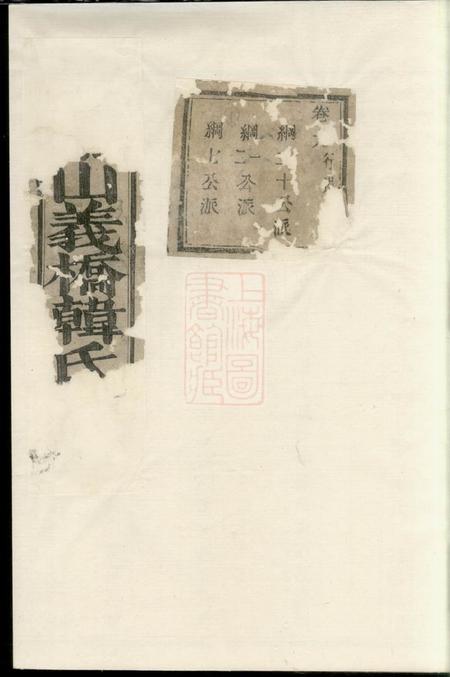 卷
綱二十公派
綱二公派
綱七公派
山義橋韓氏
上海圖
書館藏